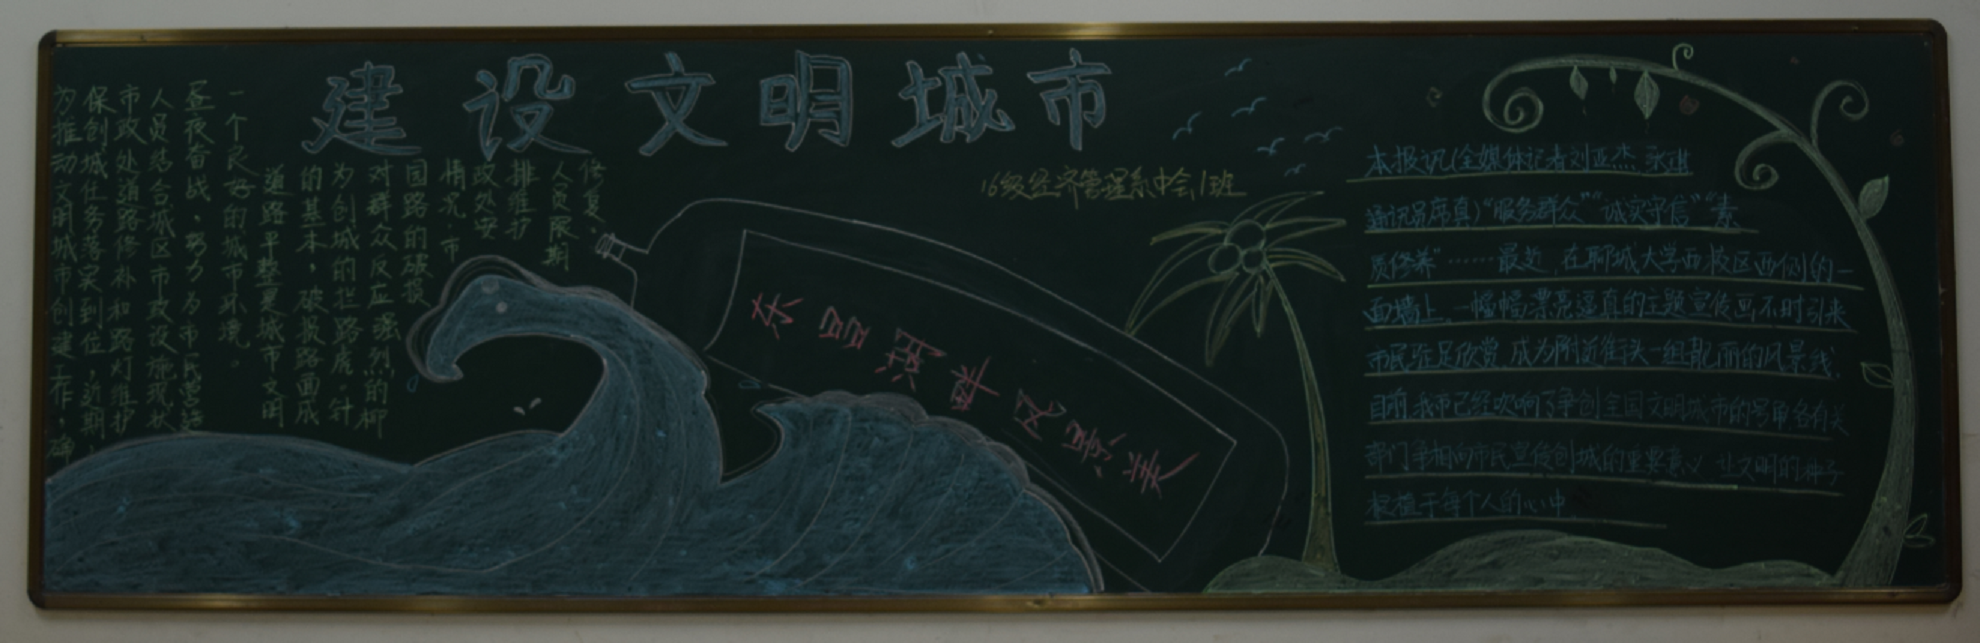 建设文明城市
16级经济管理系中会1班
为推动文明城市创建工作，确
保创城任务落实到位，近期，
市政处道路修补和路灯维护
人员结合城区市政设施现状
昼夜奋战、努力为市民营造
一个良好的城市环境。
道路平整是城市文明
的基本，破损路面成
为创城的拦路虎。针
对群众反应强烈的柳
园路的破损
情况，市
政处安
排维护
人员限期
修复。
东昌湖畔风景美
本报讯(全媒体记者刘亚杰 张琪
通讯员席真)“服务群众”“诚实守信”“素
质修养”……最近，在聊城大学西校区西侧的一
面墙上，一幅幅漂亮逼真的主题宣传画不时引来
市民驻足欣赏，成为附近街头一组靓丽的风景线。
目前，我市已经吹响了争创全国文明城市的号角各有关
部门争相向市民宣传创城的重要意义，让文明的种子
根植于每个人的心中